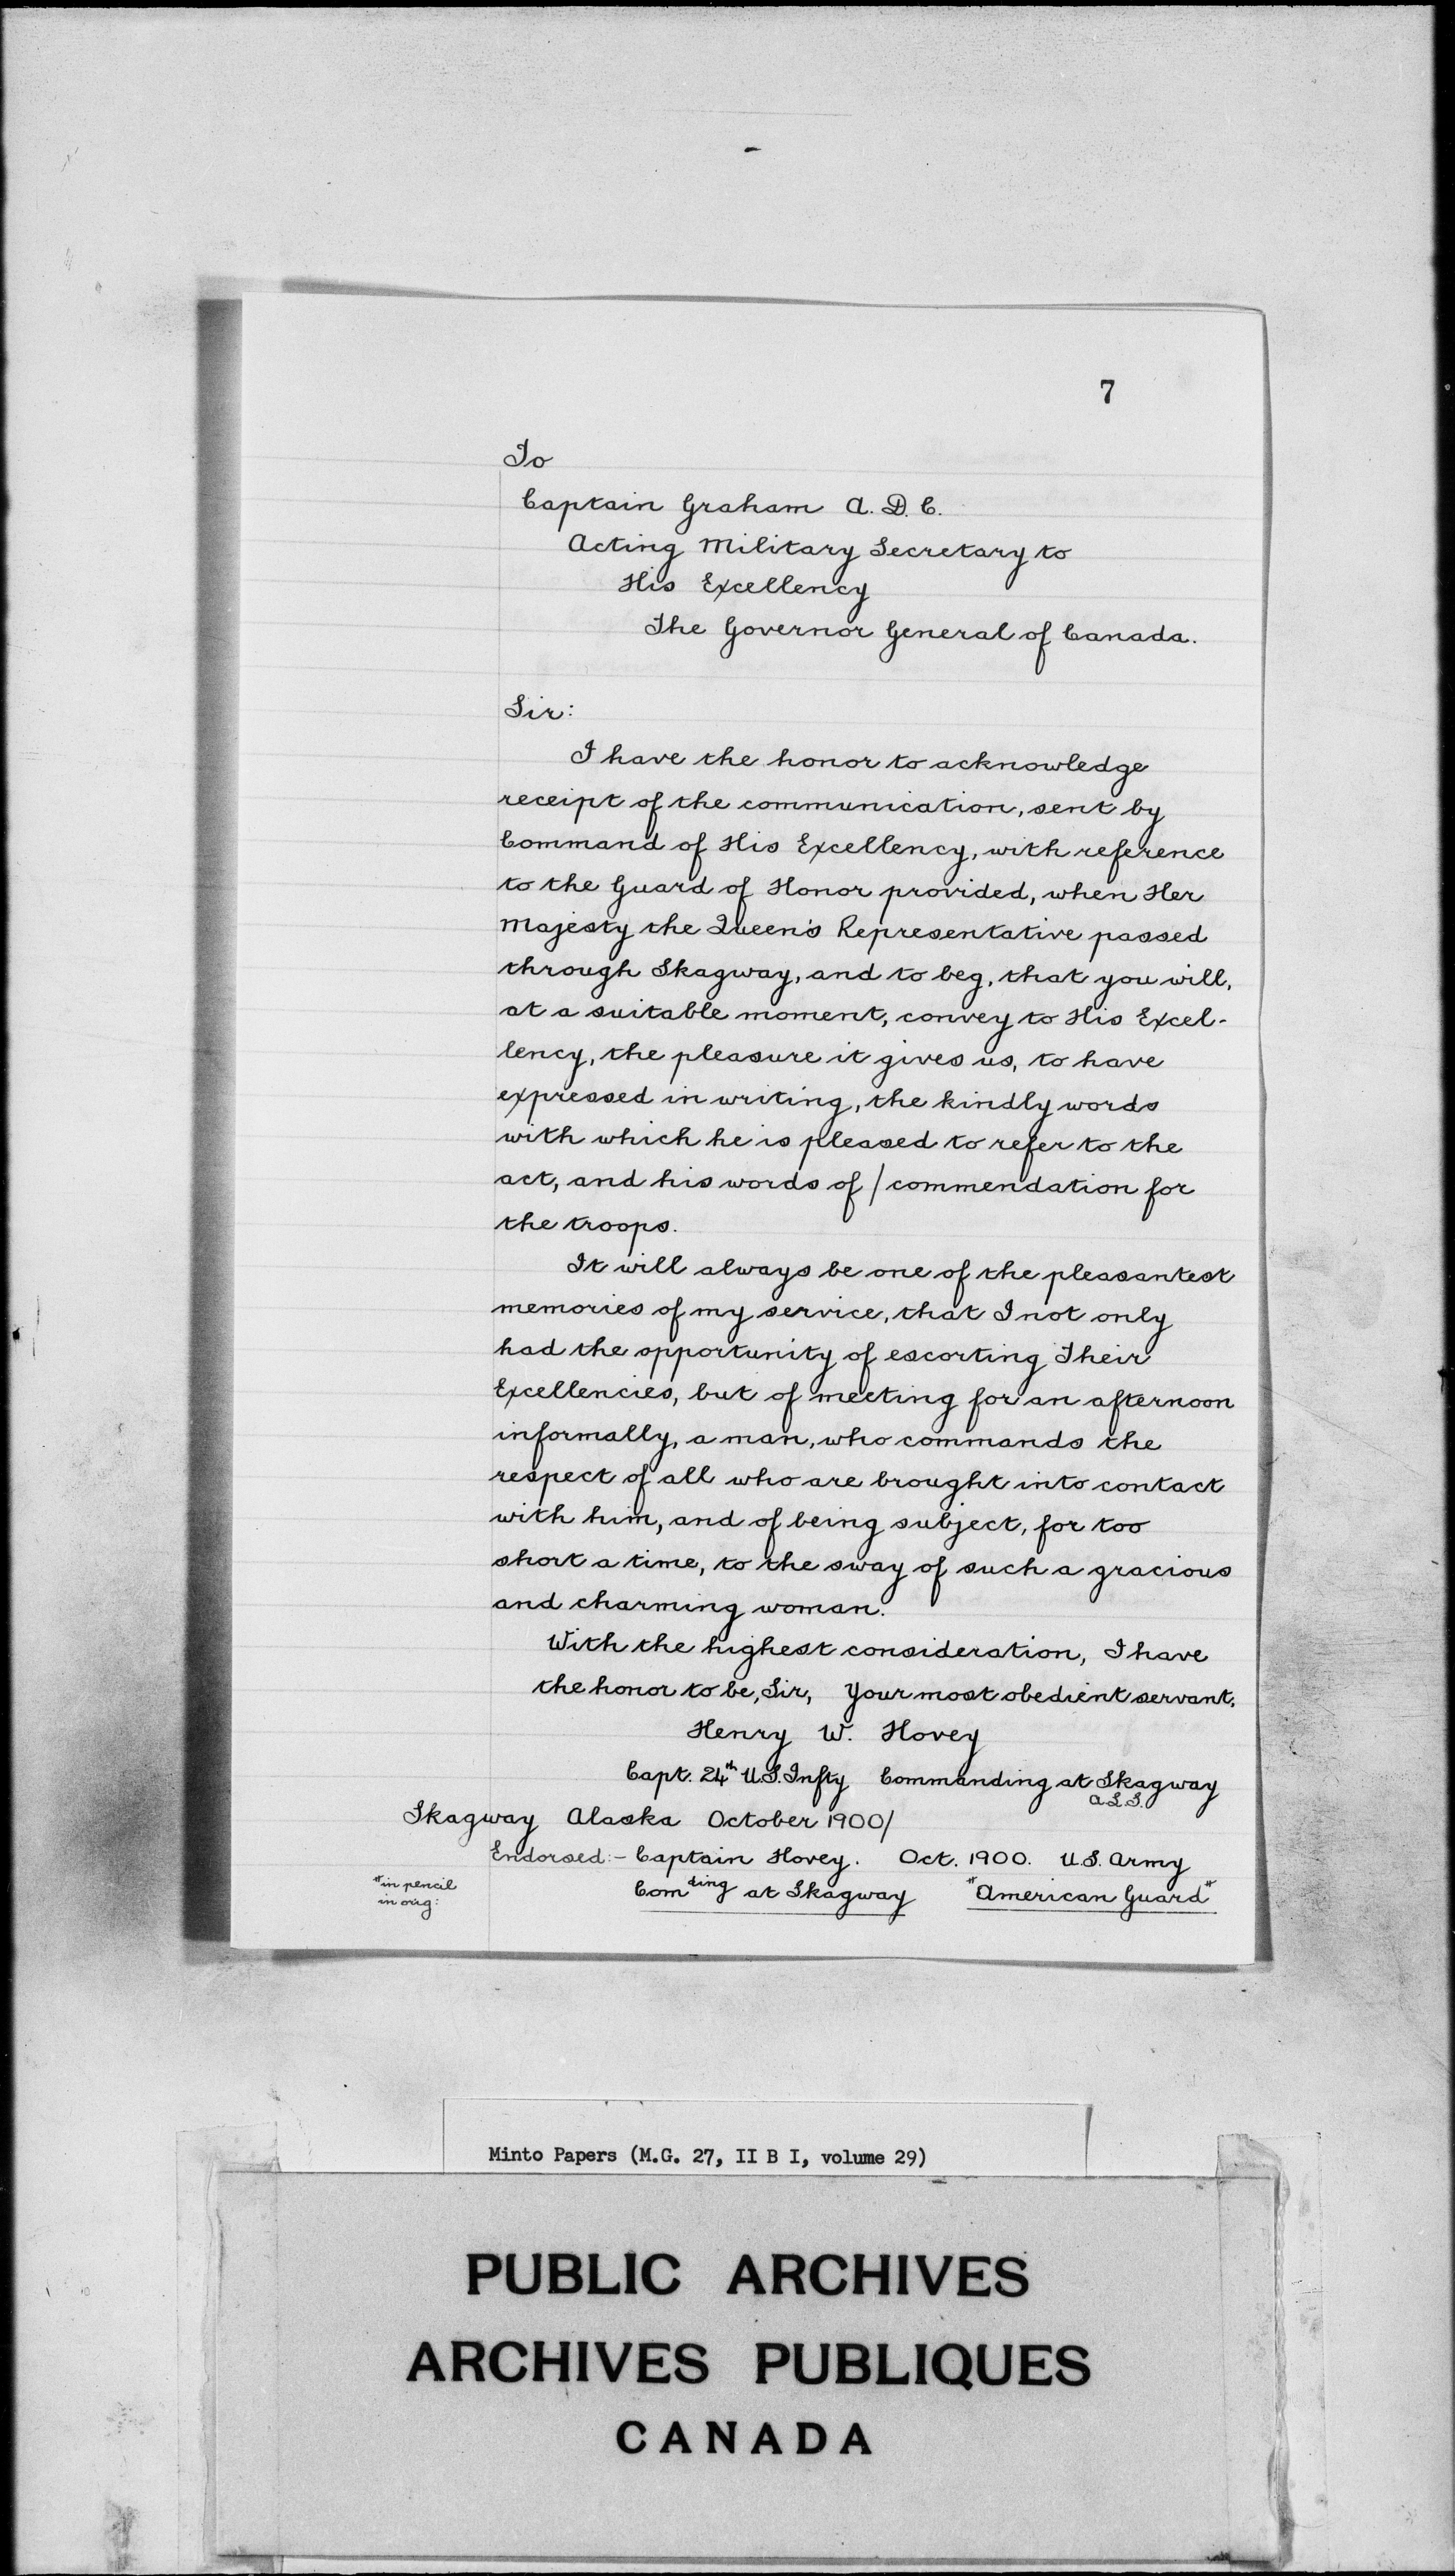 7
To
Captain Graham A.D.C.
Acting Military Secretary to
His Excellency
The Governor General of Canada.
Sir:
I have the honor to acknowledge
receipt of the communication, sent by
Command of His Excellency, with reference
to the Guard of Honor provided, when Her
Majesty the Queen's Representative passed
through Skagway, and to beg, that you will,
at a suitable moment, convey to His Excel-
lency, the pleasure it gives us, to have
expressed in writing, the kindly words
with which he is pleased to refer to the
act, and his words of / commendation for
the troops.
It will always be one of the pleasantest
memories of my service, that I not only
had the opportunity of escorting Their
Excellencies, but of meeting for an afternoon
informally, a man, who commands the
respect of all who are brought into contact
with him, and of being subject, for too
short a time, to the sway of such a gracious
and charming woman.
With the highest consideration, I have
the honor to be, Sir, Your most obedient servant,
Henry W. Hovey
Capt. 24th U.S. Infty Commanding at Skagway
A.L.S.
Skagway Alaska October 1900/
Endorsed:- Captain Hovey. Oct. 1900. U.S. Army
Comding at Skagway "American Guard"
*in pencil
in orig:
Minto Papers (M.G. 27, II B I, volume 29)
PUBLIC ARCHIVES
ARCHIVES PUBLIQUES
CANADA